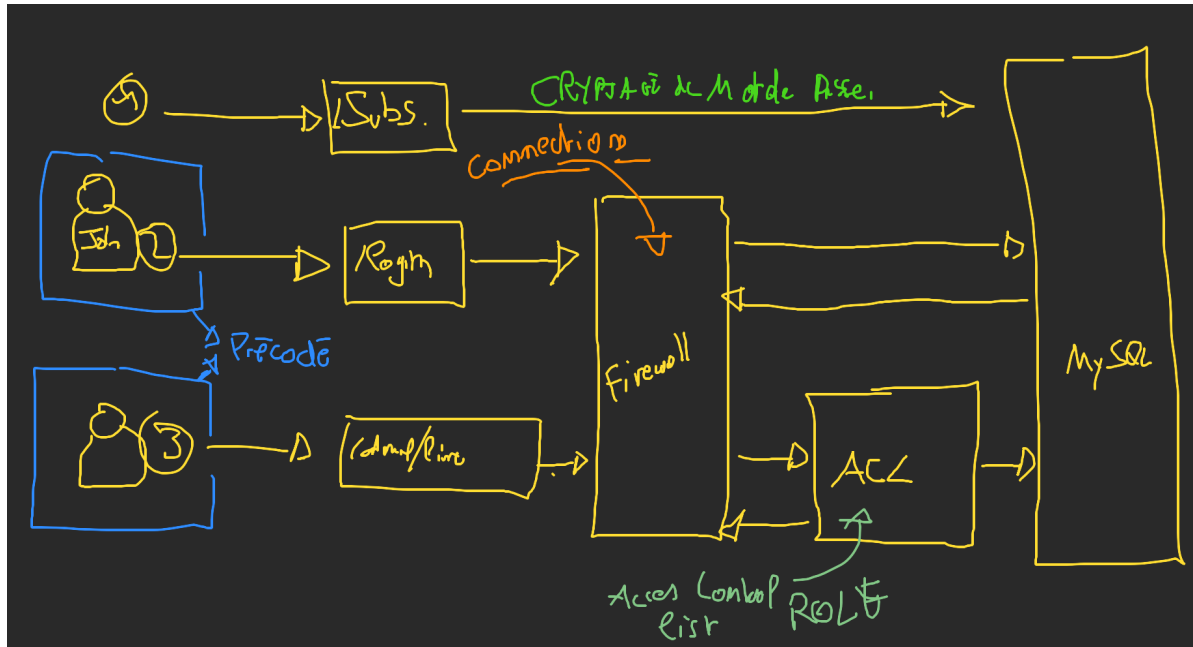 /Subs.
CRYPTAGE de Mot de Passe.
Connection
John
2
/login
Précodé
Firewall
MySQL
3
/admin/livre
ACL
Acces Control
list
ROLE